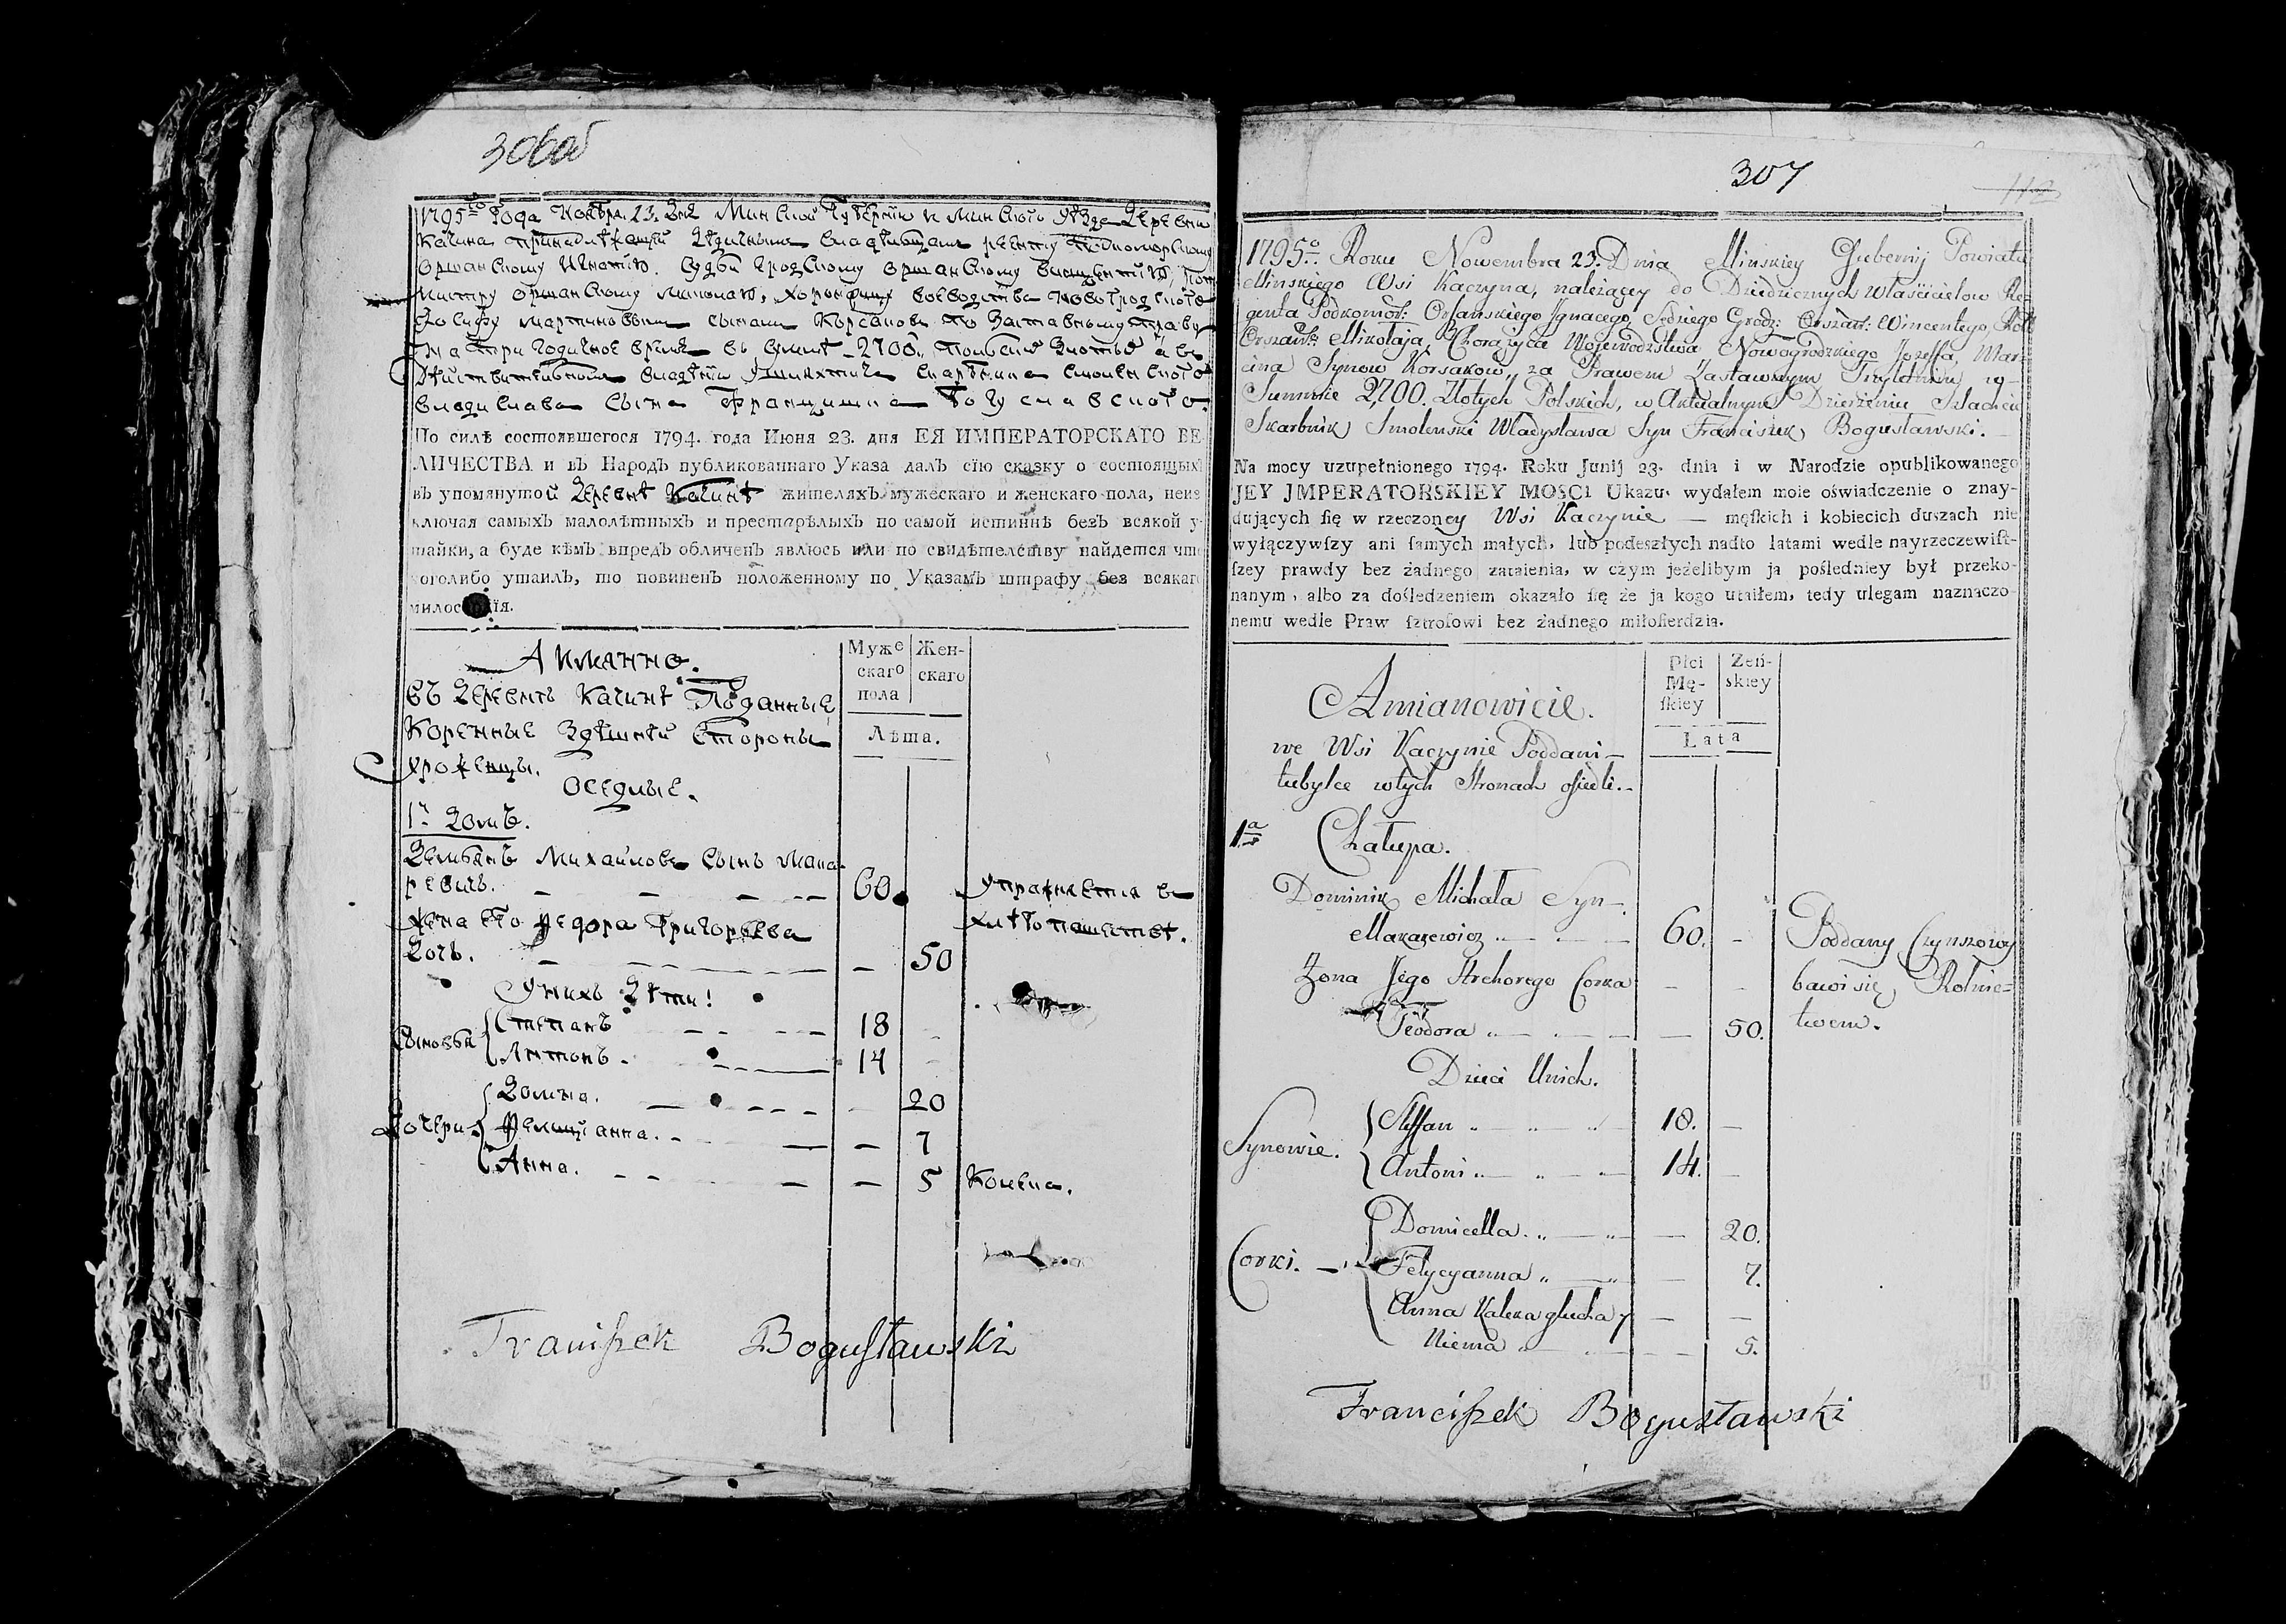 306об
1795го Года Ноября 23. дня Минской Губернии и Минского Уезда Деревни
Качина принадлежащей
Оршанскому Игнатию. Судьи Гродскому Оршанскому
Оршанскому Николаю, Хорунжичу воеводства Новогродского
Иосифу Мартиновым сынам Корсаковъ по Заставному праву
на три годичное время въ сумме 2700. Польскихъ Злотыхъ а въ
действительномъ владении Шляхтича Скарбника Смоленского
Владислава сына Францишка Богуславского.
По силѣ состоявшегося 1794. года Июня 23. дня ЕЯ ИМПЕРАТОРСКАГО ВЕ-
ЛИЧЕСТВА и въ Народъ публикованнаго Указа далъ сїю сказку о состоящихъ
въ упомянутой Деревнѣ Качинѣ жителяхъ мужескаго и женскаго пола, неис-
ключая самыхъ малолѣтныхъ и престарѣлыхъ по самой истиннѣ безъ всякой у-
тайки, а буде кѣмъ впредъ обличенъ явлюсь или по свидѣтелству найдется что
коголибо утаилъ, то повиненъ положенному по Указамъ штрафу без всякаго
милосердїя.
Муже
скаго
пола
Жен-
скаго
Лѣта.
Имянно.
въ Деревнѣ Качинѣ Поданные
Коренные Здѣшнѣй Стороны
Уроженцы.
Оседлые.
1й Домъ.
Демьянъ Михайловъ Сынъ Мака-
ревичъ. 60. Упражняется въ
хлѣбопашествѣ.
Жена его Федора Григорьева
Дочь. 50
У нихъ Дѣти!
Сыновья
Степанъ 18
Антонъ. 14
Дочери
Домна. 20
Фелициянна. 7
Анна. 5 Колека.
Franciszek Bogusławski
307
112
1795o Roku Nowembra 23. Dnia Minskiey Gubernij Powiatu
Minskiego Wsi Kaczyna, należącey do Dziedzicznych Właścicielow Re-
genta Podkomor: Orszańskiego Jgnacego, Sędziego Grodz: Orszań: Wincentego, Rot:
Orszań: Mikołaja, Chorążyca Wojewodztwa Nowogrodzkiego Jozeffa, Mar-
cina Synow Korsakow, za Prawem Zastawnym Trzyletnim w
Summie 2,700. Złotych Polskich, w Aktualnym Dzierżeniu Szlachcic
Skarbnik Smolenski Władysława Syn Franciszek Bogusławski.
Na mocy uzupełnionego 1794. Roku Junij 23. dnia i w Narodzie opublikowanego
JEY JMPERATORSKIEY MOSCI Ukazu, wydałem moie oświadczenie o znay-
dujących się w rzeczoney Wsi Kaczynie — męskich i kobiecich duszach nie
wyłączywszy ani samych małych, lub podeszłych nadto latami wedle nayrzeczewist-
szey prawdy bez żadnego zataienia, w czym jeżelibym ja pośledniey był przeko-
nanym, albo za dośledzeniem okazało się że ja kogo utaiłem, tedy ulegam naznaczo-
nemu wedle Praw sztrofowi bez żadnego miłosierdzia.
Płci
Mę-
skiey
Zeń-
skiey
Lata
Amianowicie.
we Wsi Kaczynie Poddani
tubylce w tych Stronach osiedli.
1a Chałupa.
Dominik Michała Syn
Makarewicz 60. Poddany Czynszowy
bawi się Rolnic-
twem.
Zona Jego Hrehorego Corka
Teodora 50.
Dzieci Unich.
Synowie.
Steffan 18.
Antoni 14.
Corki.
Domicella 20.
Felycyanna 7.
Anna Kaleka głucha y
Niema 5.
Franciszek Bogusławski